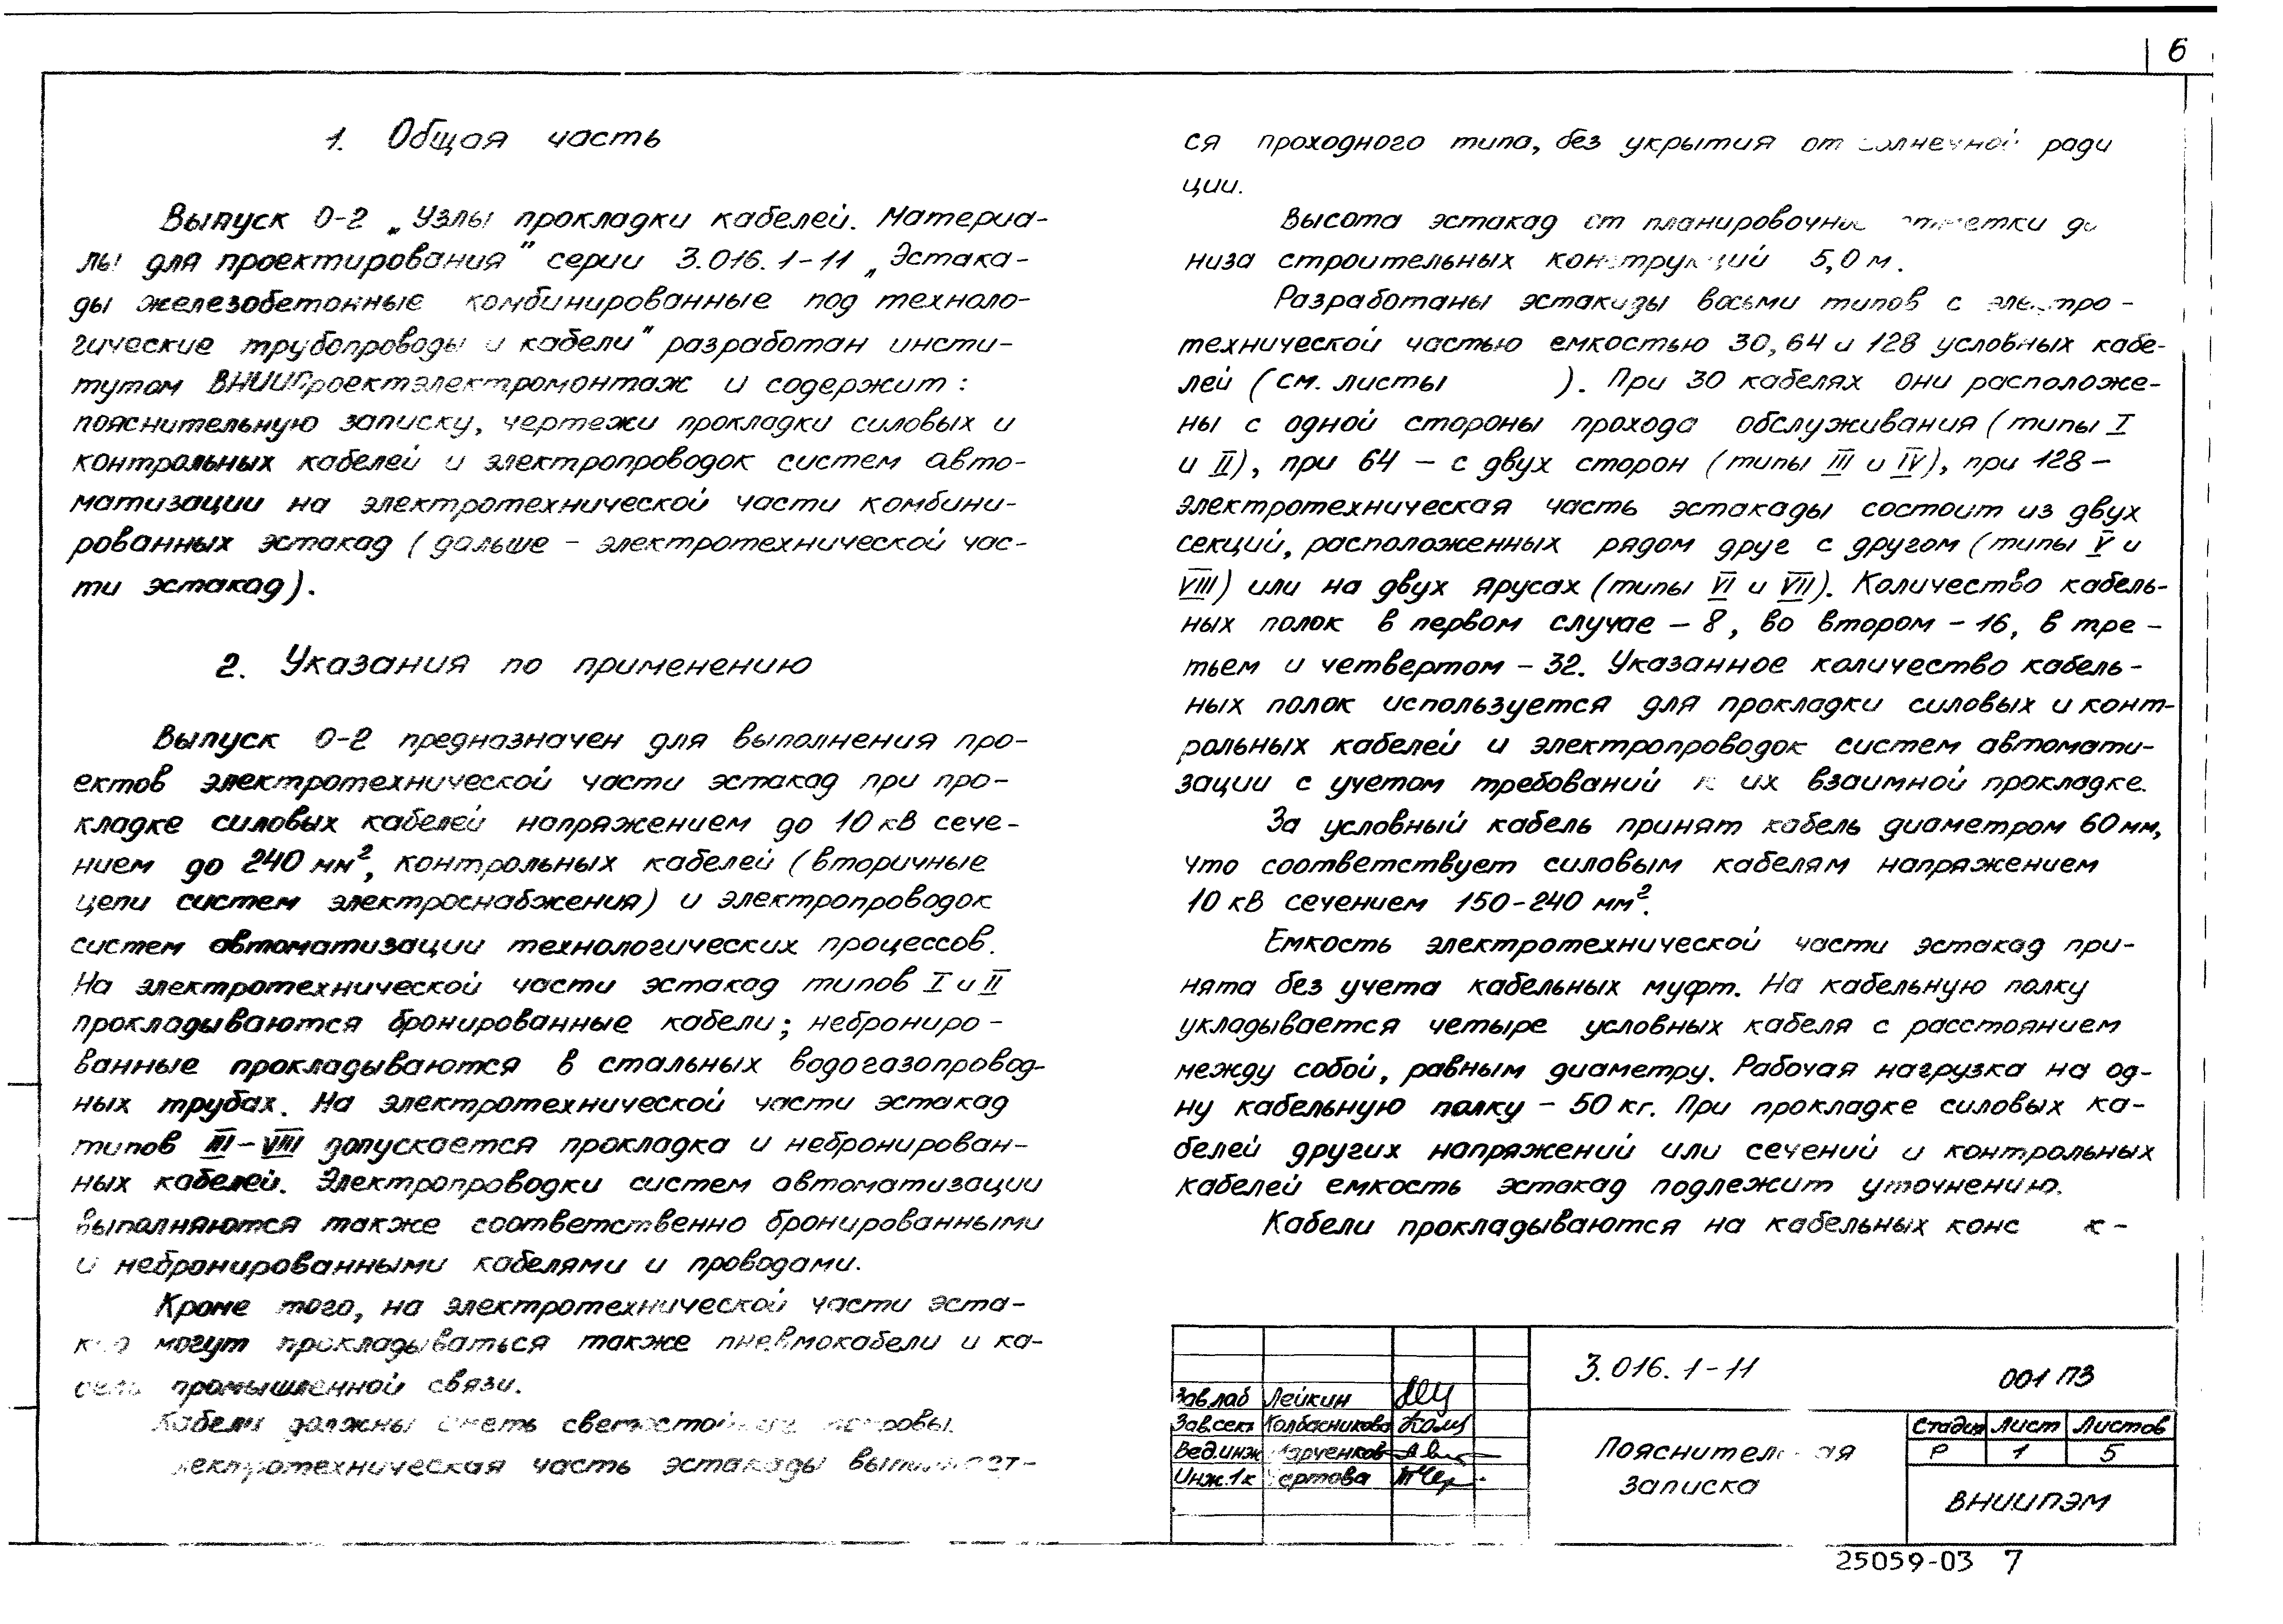 6
1. Общая часть
Выпуск 0-2 „Узлы прокладки кабелей. Материа-
лы для проектирования" серии 3.016.1-11 „Эстака-
ды железобетонные комбинированные под техноло-
гические трубопроводы и кабели" разработан инсти-
тутом ВНИИПроектэлектромонтаж и содержит:
пояснительную записку, чертежи прокладки силовых и
контрольных кабелей и электропроводок систем авто-
матизации на электротехнической части комбини-
рованных эстакад (дальше - электротехнической час-
ти эстакад).
2. Указания по применению
Выпуск 0-2 предназначен для выполнения про-
ектов электротехнической части эстакад при про-
кладке силовых кабелей напряжением до 10 кВ сече-
нием до 240 мм², контрольных кабелей (вторичные
цепи систем электроснабжения) и электропроводок
систем автоматизации технологических процессов.
На электротехнической части эстакад типов I и II
прокладываются бронированные кабели; неброниро-
ванные прокладываются в стальных водогазопровод-
ных трубах. На электротехнической части эстакад
типов III-VIII допускается прокладка и небронирован-
ных кабелей. Электропроводки систем автоматизации
выполняются также соответственно бронированными
и небронированными кабелями и проводами.
Кроме того, на электротехнической части эста-
могут прокладываться также пневмокабели и ка-
промышленной связи.
Кабели должны иметь
часть эстакады
ся проходного типа, без укрытия от солнечной ради
ции.
Высота эстакад от планировочной отметки до
низа строительных конструкций 5,0 м.
Разработаны эстакады восьми типов с электро-
технической частью емкостью 30, 64 и 128 условных кабе-
лей (см. листы ). При 30 кабелях они расположе-
ны с одной стороны прохода обслуживания (типы I
и II), при 64 - с двух сторон (типы III и IV), при 128 -
электротехническая часть эстакады состоит из двух
секций, расположенных рядом друг с другом (типы V и
VIII) или на двух ярусах (типы VI и VII). Количество кабель-
ных полок в первом случае - 8, во втором - 16, в тре-
тьем и четвертом - 32. Указанное количество кабель-
ных полок используется для прокладки силовых и конт-
рольных кабелей и электропроводок систем автомати-
зации с учетом требований к их взаимной прокладке.
За условный кабель принят кабель диаметром 60 мм,
что соответствует силовым кабелям напряжением
10 кВ сечением 150-240 мм².
Емкость электротехнической части эстакад при-
нята без учета кабельных муфт. На кабельную полку
укладывается четыре условных кабеля с расстоянием
между собой, равным диаметру. Рабочая нагрузка на од-
ну кабельную полку - 50 кг. При прокладке силовых ка-
белей других напряжений или сечений и контрольных
кабелей емкость эстакад подлежит уточнению.
Кабели прокладываются на кабельных
Зав.лаб Лейкин
Зав.сект Колбасникова
Вед.инж
Инж.1к
3.016.1-11 001 ПЗ
Пояснительная
записка
Стадия Лист Листов
Р 1 5
ВНИИПЭМ
25059-03 7